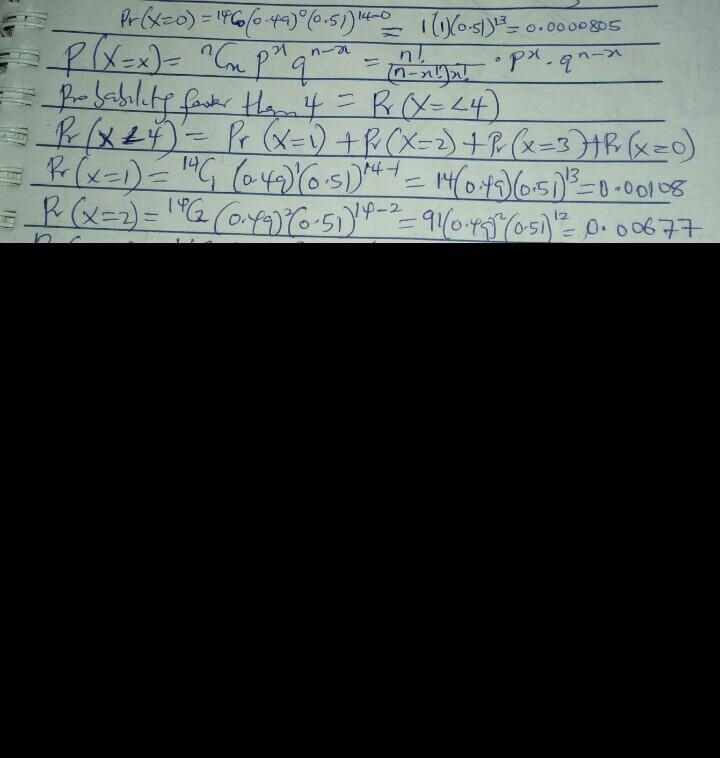 Pr(X=0) = ¹⁴C₀(0.49)⁰(0.51)¹⁴⁻⁰ = 1(1)(0.51)¹³ = 0.0000805
P(X=x) = ⁿCₓ pˣ qⁿ⁻ˣ = n!/(n-x!)x! · pˣ · qⁿ⁻ˣ
Probability fewer than 4 = Pr(X=<4)
Pr(X<4) = Pr(X=1) + Pr(X=2) + Pr(X=3) + Pr(X=0)
Pr(X=1) = ¹⁴C₁ (0.49)¹(0.51)¹⁴⁻¹ = 14(0.49)(0.51)¹³ = 0.00108
Pr(X=2) = ¹⁴C₂ (0.49)²(0.51)¹⁴⁻² = 91(0.49)²(0.51)¹² = 0.00677